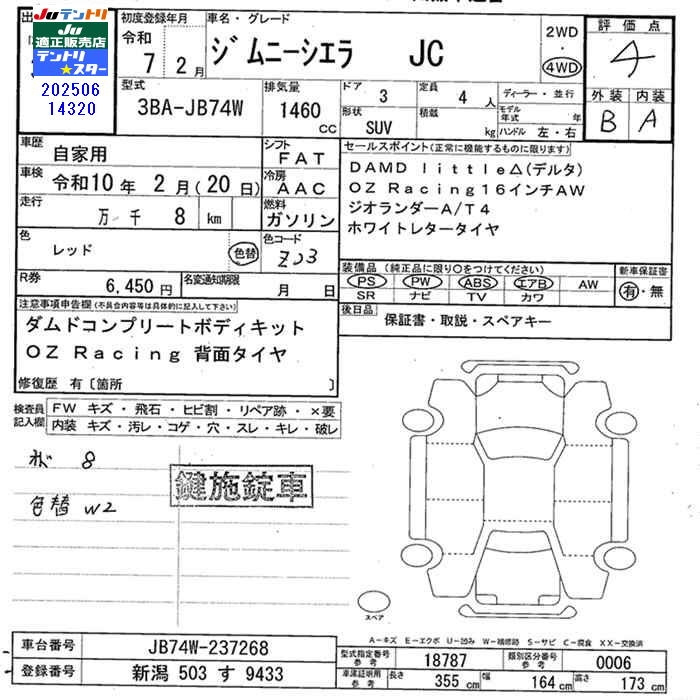 JUテントリ
JU
適正販売店
テントリ
スター
202506
14320
初度登録年月
令和
7 2月
車名・グレード
ジムニーシエラ JC
2WD
・
4WD
評価点
4
外装 内装
B A
型式
3BA-JB74W
排気量
1460
cc
ドア 3
形状 SUV
定員 4 人
積載 kg
ディーラー・並行
モデル年式 年
ハンドル 左・右
車歴 自家用
シフト FAT
車検 令和10年 2月(20日)
冷房 AAC
走行 万 千 8 km
燃料 ガソリン
色 レッド 色替
色コード Z03
セールスポイント(正常に機能するものに限ります)
DAMD little△(デルタ)
OZ Racing16インチAW
ジオランダーA/T4
ホワイトレタータイヤ
R券 6,450円
名変通知期限 月 日
装備品(純正品に限り○をつけてください)
PS PW ABS エアB AW
SR ナビ TV カワ
新車保証書
有・無
後日品 保証書・取説・スペアキー
注意事項申告欄(不具合内容等は具体的に記入して下さい)
ダムドコンプリートボディキット
OZ Racing 背面タイヤ
修復歴 有〔箇所 〕
検査員記入欄
FW キズ・飛石・ヒビ割・リペア跡・×要
内装 キズ・汚レ・コゲ・穴・スレ・キレ・破レ
8
色替 W2
鍵施錠車
スペア
A-キズ E-エクボ U-凹み W-補修跡 S-サビ C-腐食 XX-交換済
車台番号 JB74W-237268
登録番号 新潟 503 す 9433
型式指定番号 参考 18787
類別区分番号 参考 0006
車庫証明用 参考 長さ 355 cm 幅 164 cm 高さ 173 cm